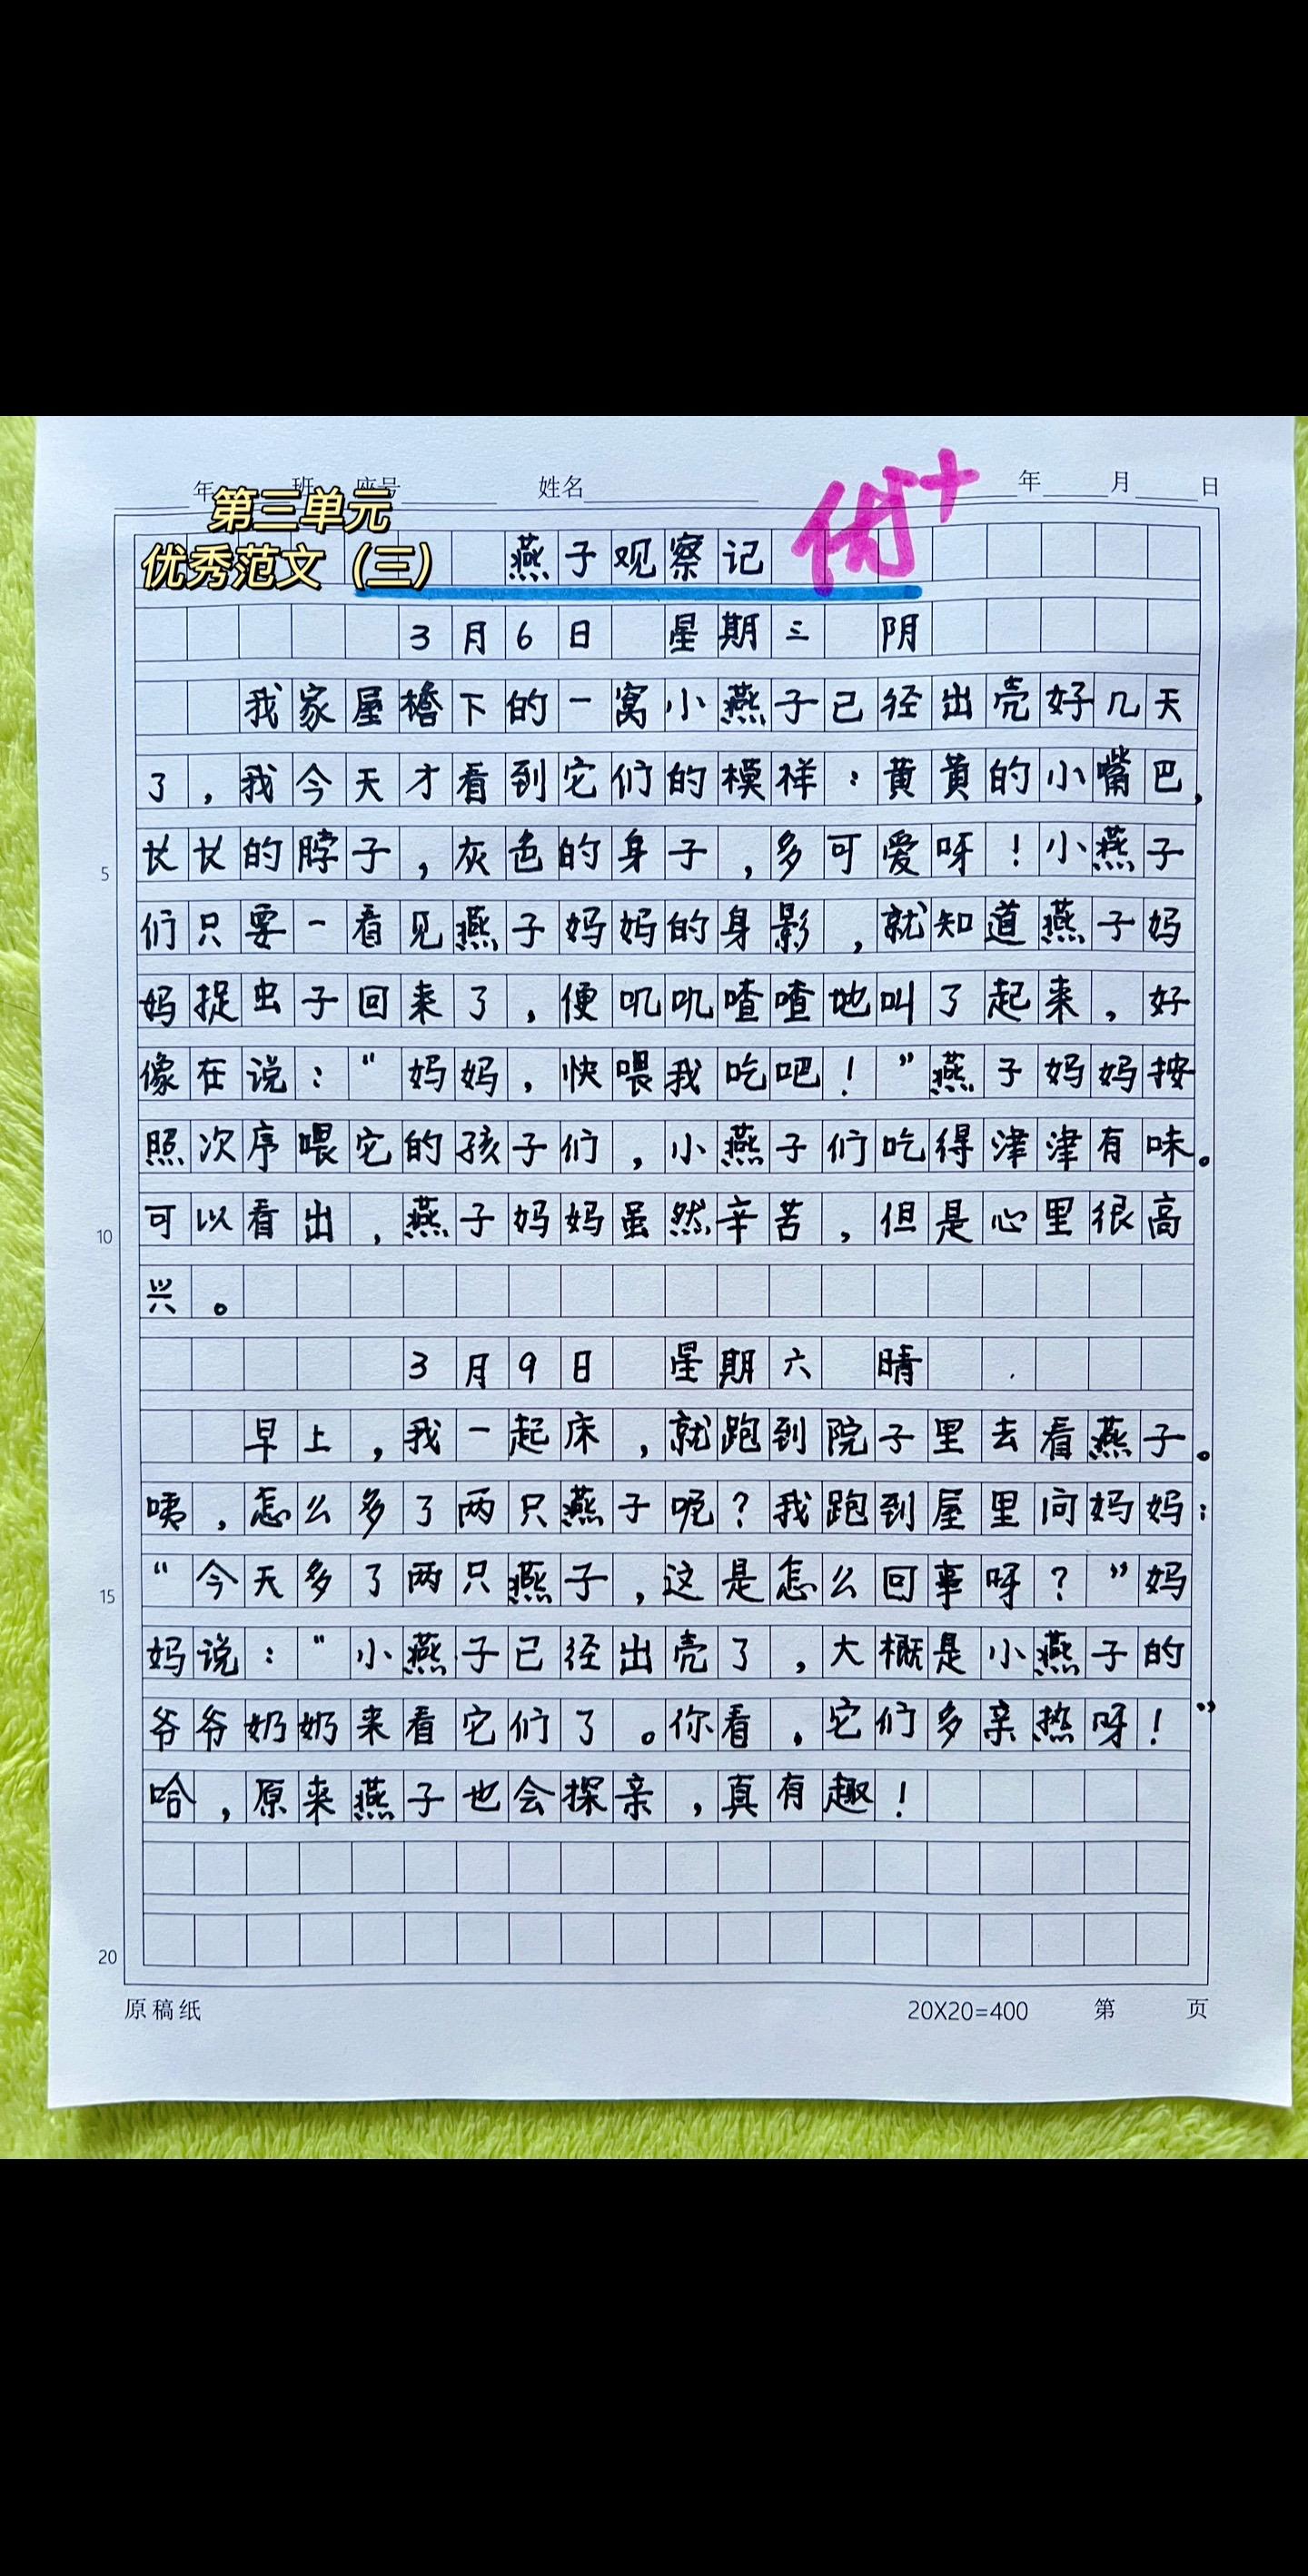 年 班 座号 姓名 年 月 日
第三单元
优秀范文（三）
优+
燕子观察记
3月6日 星期三 阴
我家屋檐下的一窝小燕子已经出壳好几天
了，我今天才看到它们的模样：黄黄的小嘴巴，
长长的脖子，灰色的身子，多可爱呀！小燕子
们只要一看见燕子妈妈的身影，就知道燕子妈
妈捉虫子回来了，便叽叽喳喳地叫了起来，好
像在说：“妈妈，快喂我吃吧！”燕子妈妈按
照次序喂它的孩子们，小燕子们吃得津津有味。
可以看出，燕子妈妈虽然辛苦，但是心里很高
兴。
3月9日 星期六 晴
早上，我一起床，就跑到院子里去看燕子。
咦，怎么多了两只燕子呢？我跑到屋里问妈妈：
“今天多了两只燕子，这是怎么回事呀？”妈
妈说：“小燕子已经出壳了，大概是小燕子的
爷爷奶奶来看它们了。你看，它们多亲热呀！”
哈，原来燕子也会探亲，真有趣！
5
10
15
20
原稿纸 20X20=400 第 页